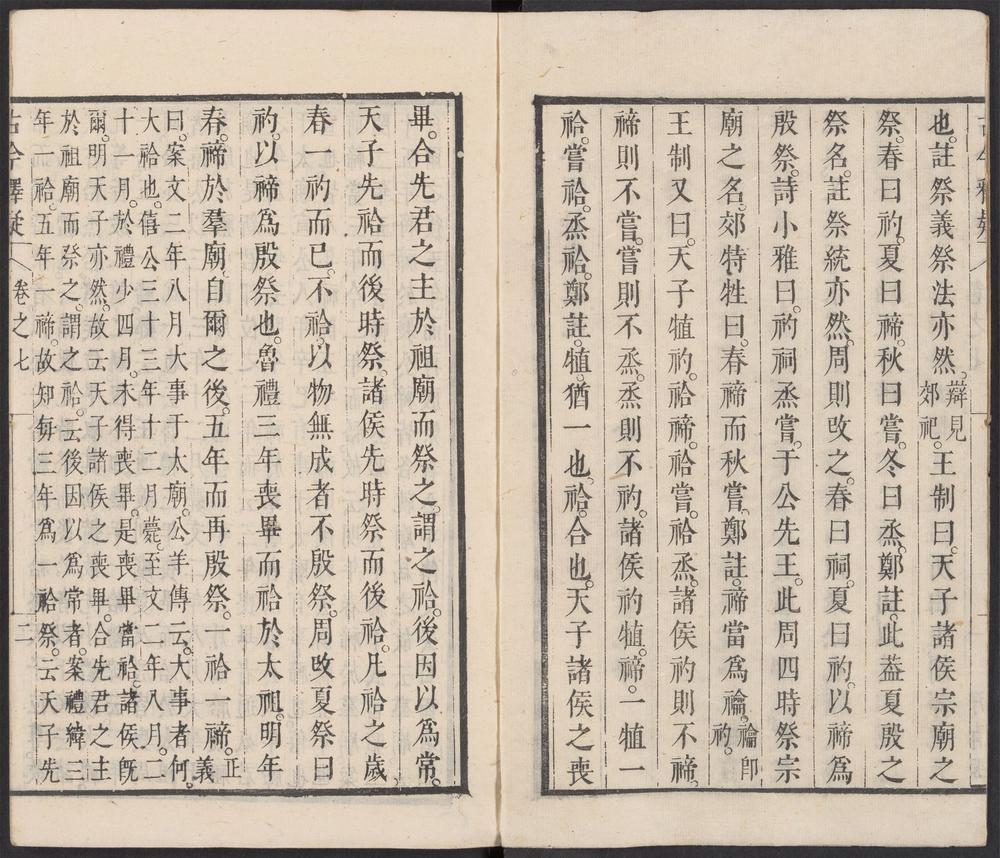 也。註祭義祭法亦然。辯見郊祀。王制曰。天子諸侯宗廟之
祭。春曰礿。夏曰禘。秋曰嘗。冬曰烝。鄭註。此葢夏殷之
祭名。註祭統亦然。周則攺之。春曰祠。夏曰礿。以禘爲
殷祭。詩小雅曰。礿祠烝嘗。于公先王。此周四時祭宗
廟之名。郊特牲曰。春禘而秋嘗。鄭註。禘當爲禴。禴卽礿。
王制又曰。天子犆礿。祫禘。祫嘗。祫烝。諸侯礿則不禘。
禘則不嘗。嘗則不烝。烝則不礿。諸侯礿犆。禘。一犆一
祫。嘗祫。烝祫。鄭註。犆。猶一也。祫。合也。天子諸侯之喪
畢。合先君之主於祖廟而祭之。謂之祫。後因以爲常。
天子先祫而後時祭。諸侯先時祭而後祫。凡祫之歲。
春一礿而已。不祫。以物無成者不殷祭。周攺夏祭曰
礿。以禘爲殷祭也。魯禮三年喪畢而祫於太祖。明年
春。禘於羣廟。自爾之後。五年而再殷祭。一祫一禘。正義
曰。案文二年八月大事于太廟。公羊傳云。大事者何。
大祫也。僖公三十三年十二月薨。至文二年八月。二
十一月。於禮少四月。未得喪畢。是喪畢當祫。諸侯旣
爾。明天子亦然。故云天子諸侯之喪畢。合先君之主
於祖廟而祭之。謂之祫。云後因以爲常者。案禮緯三
年一祫。五年一禘。故知每三年爲一祫祭。云天子先
古今釋疑 卷之七 二